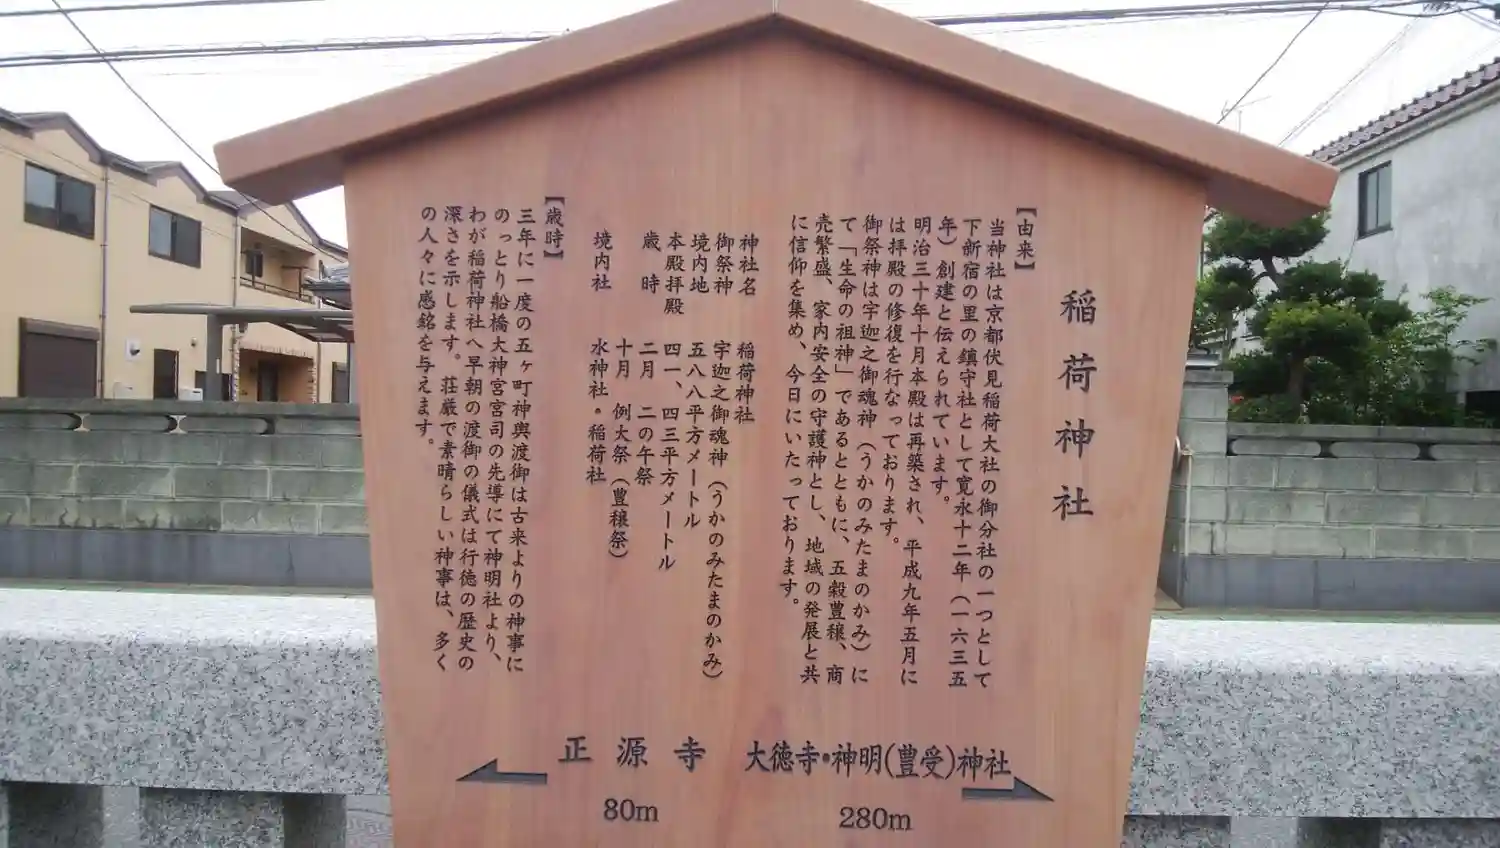 稲荷神社
【由来】
当神社は京都伏見稲荷大社の御分社の一つとして
下新宿の里の鎮守社として寛永十二年（一六三五
年）創建と伝えられています。
明治三十年十月本殿は再築され、平成九年五月に
は拝殿の修復を行なっております。
御祭神は宇迦之御魂神（うかのみたまのかみ）に
て「生命の祖神」であるとともに、五穀豊穣、商
売繁盛、家内安全の守護神とし、地域の発展と共
に信仰を集め、今日にいたっております。
神社名　稲荷神社
御祭神　宇迦之御魂神（うかのみたまのかみ）
境内地　五八八平方メートル
本殿拝殿　四一、四三平方メートル
歳　時　二月　二の午祭
十月　例大祭（豊穣祭）
境内社　水神社・稲荷社
【歳時】
三年に一度の五ヶ町神輿渡御は古来よりの神事に
のっとり船橋大神宮宮司の先導にて神明社より、
わが稲荷神社へ早朝の渡御の儀式は行徳の歴史の
深さを示します。荘厳で素晴らしい神事は、多く
の人々に感銘を与えます。
正源寺
80m
大徳寺・神明(豊受)神社
280m